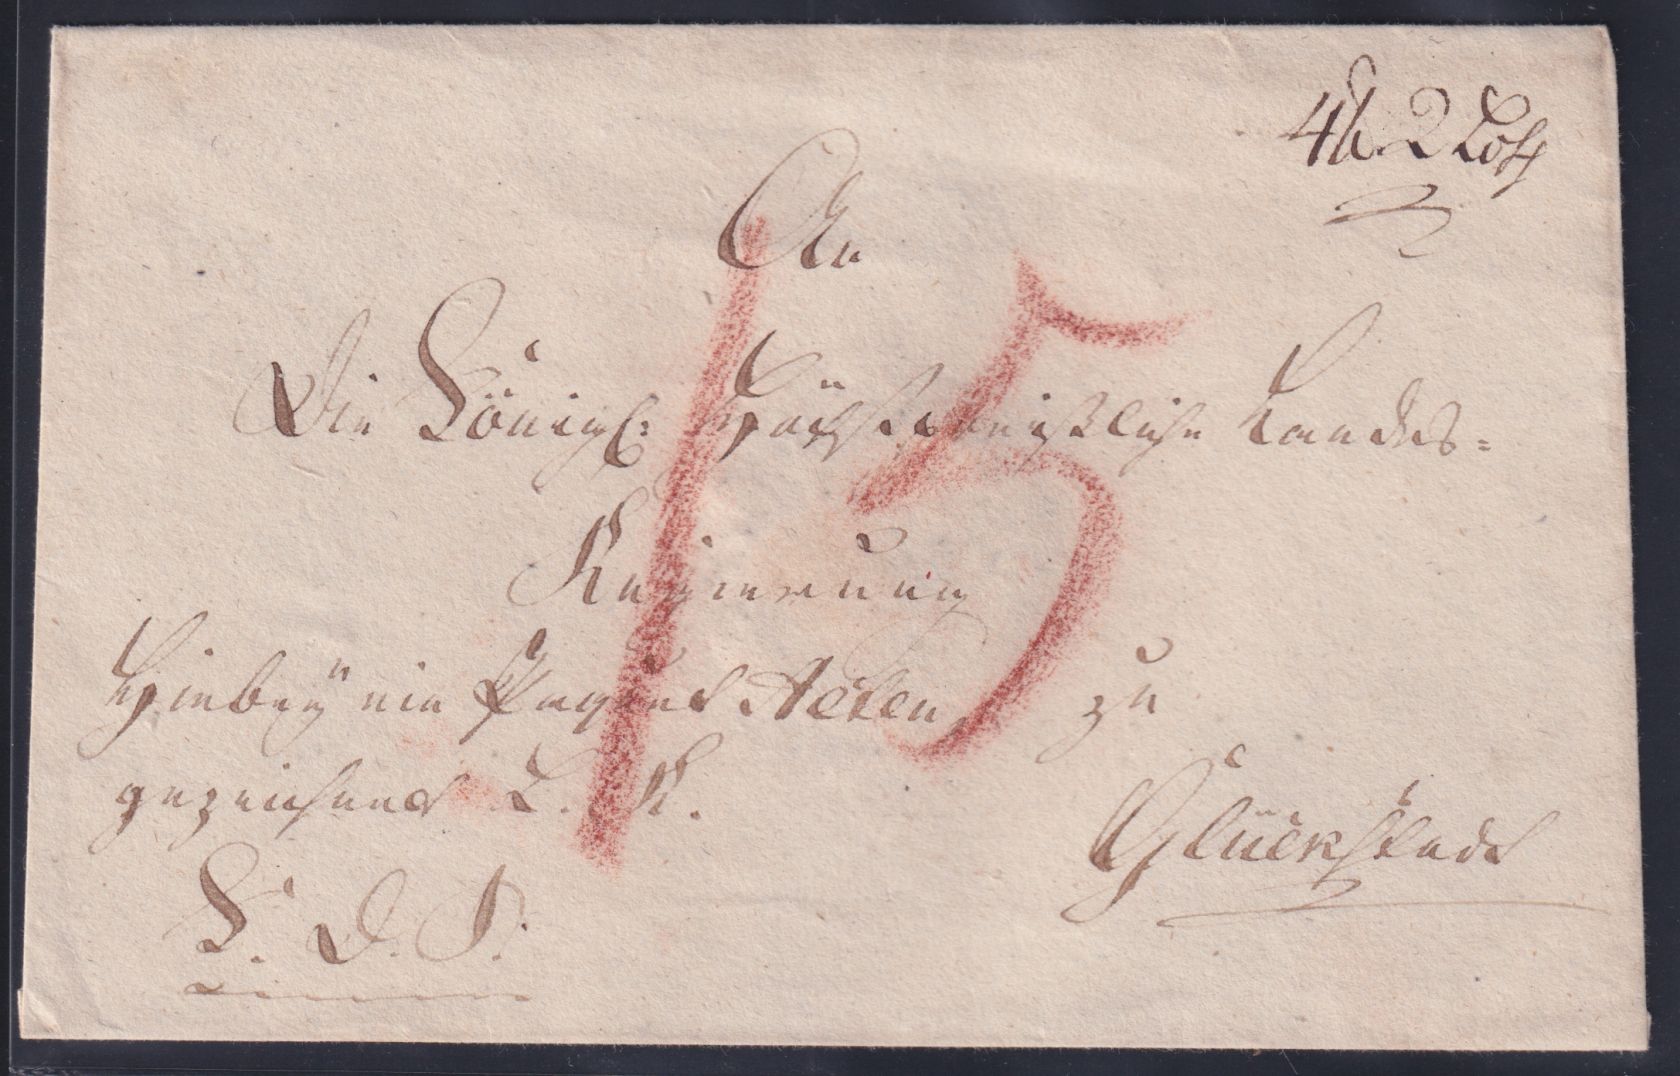 4 ℔ 2 Loth
An
Die Königl: Höchstpreißliche Landes=
Regierung
Hiebey ein Paquet Acten, zu
gezeichnet L. R.
Glückstadt
K. D. S.
15